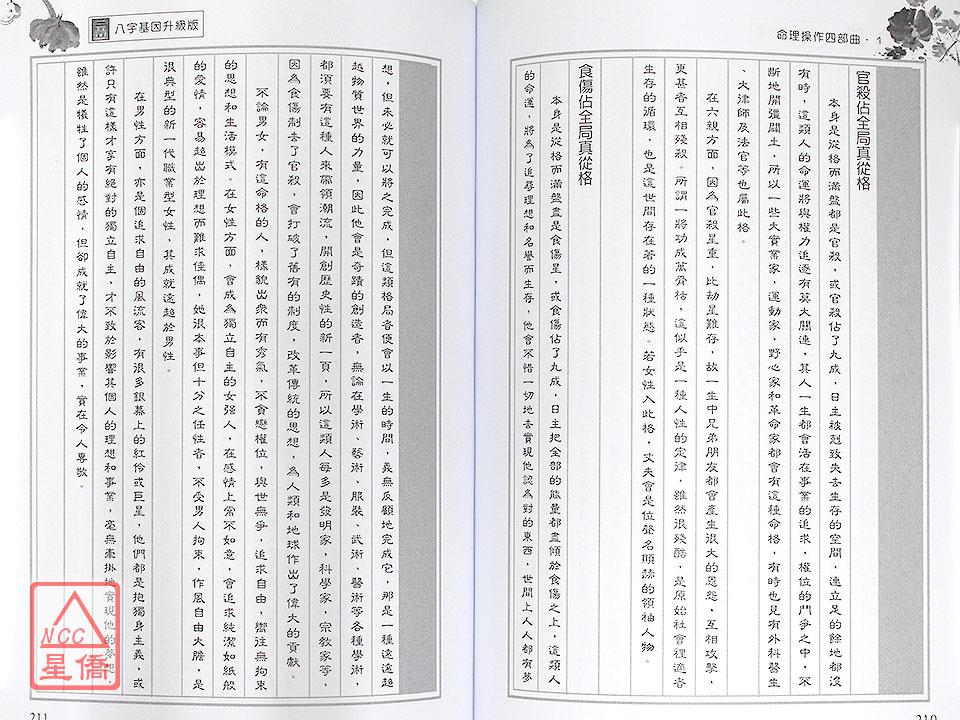 命理操作四部曲・1
官殺佔全局真從格
本身是從格而滿盤都是官殺，或官殺佔了九成，日主被剋致失去生存的空間，連立足的餘地都沒
有時，這類人的命運將與權力追逐有莫大關連，其人一生都會活在事業的追求，權位的鬥爭之中，不
斷地開彊闢土，所以一些大實業家，運動家，野心家和革命家都會有這種命格，有時也見有外科醫生
、大律師及法官等也屬此格。
在六親方面，因為官殺星重，比劫星難存，故一生中兄弟朋友都會產生很大的恩怨，互相攻擊，
更甚者互相殘殺。所謂一將功成萬骨枯，這似乎是一種人性的定律，雖然很殘酷，是原始社會裡適者
生存的循環，也是這世間存在著的一種狀態。若女性入此格，丈夫會是位聲名顯赫的領袖人物。
食傷佔全局真從格
本身是從格而滿盤盡是食傷星，或食傷佔了九成，日主把全部的能量都盡傾於食傷之上，這類人
的命運，將為了追尋理想和名譽而生存，他會不惜一切地去實現他認為對的東西，世間上人人都有夢
210
八字基因升級版
想，但未必就可以將之完成，但這類格局者便會以一生的時間，義無反顧地完成它，那是一種遠遠超
越物質世界的力量，因此他會是奇蹟的創造者，無論在學術、藝術、服裝、武術、醫術等各種學術，
都須要有這種人來帶領潮流，開創歷史性的新一頁，所以這類人每多是發明家，科學家，宗教家等，
因為食傷制去了官殺，會打破了舊有的制度，改革傳統的思想，為人類和地球作出了偉大的貢獻。
不論男女，有這命格的人，樣貌出眾而有秀氣，不貪戀權位，與世無爭，追求自由，嚮往無拘束
的思想和生活模式。在女性方面，會成為獨立自主的女强人，在感情上常不如意，會追求純潔如紙般
的愛情，容易超出於理想而難求佳偶，她很本事但十分之任性者，不受男人拘束，作風自由大膽，是
很典型的新一代職業型女性，其成就遠超於男性。
在男性方面，亦是個追求自由的風流客，有很多銀幕上的紅伶或巨星，他們都是抱獨身主義，或
許只有這樣才享有絕對的獨立自主，才不致於影響其個人的理想和事業，毫無牽掛地實現他的夢想，
雖然是犧牲了個人的感情，但卻成就了偉大的事業，實在令人專敬。
211
NCC
星僑